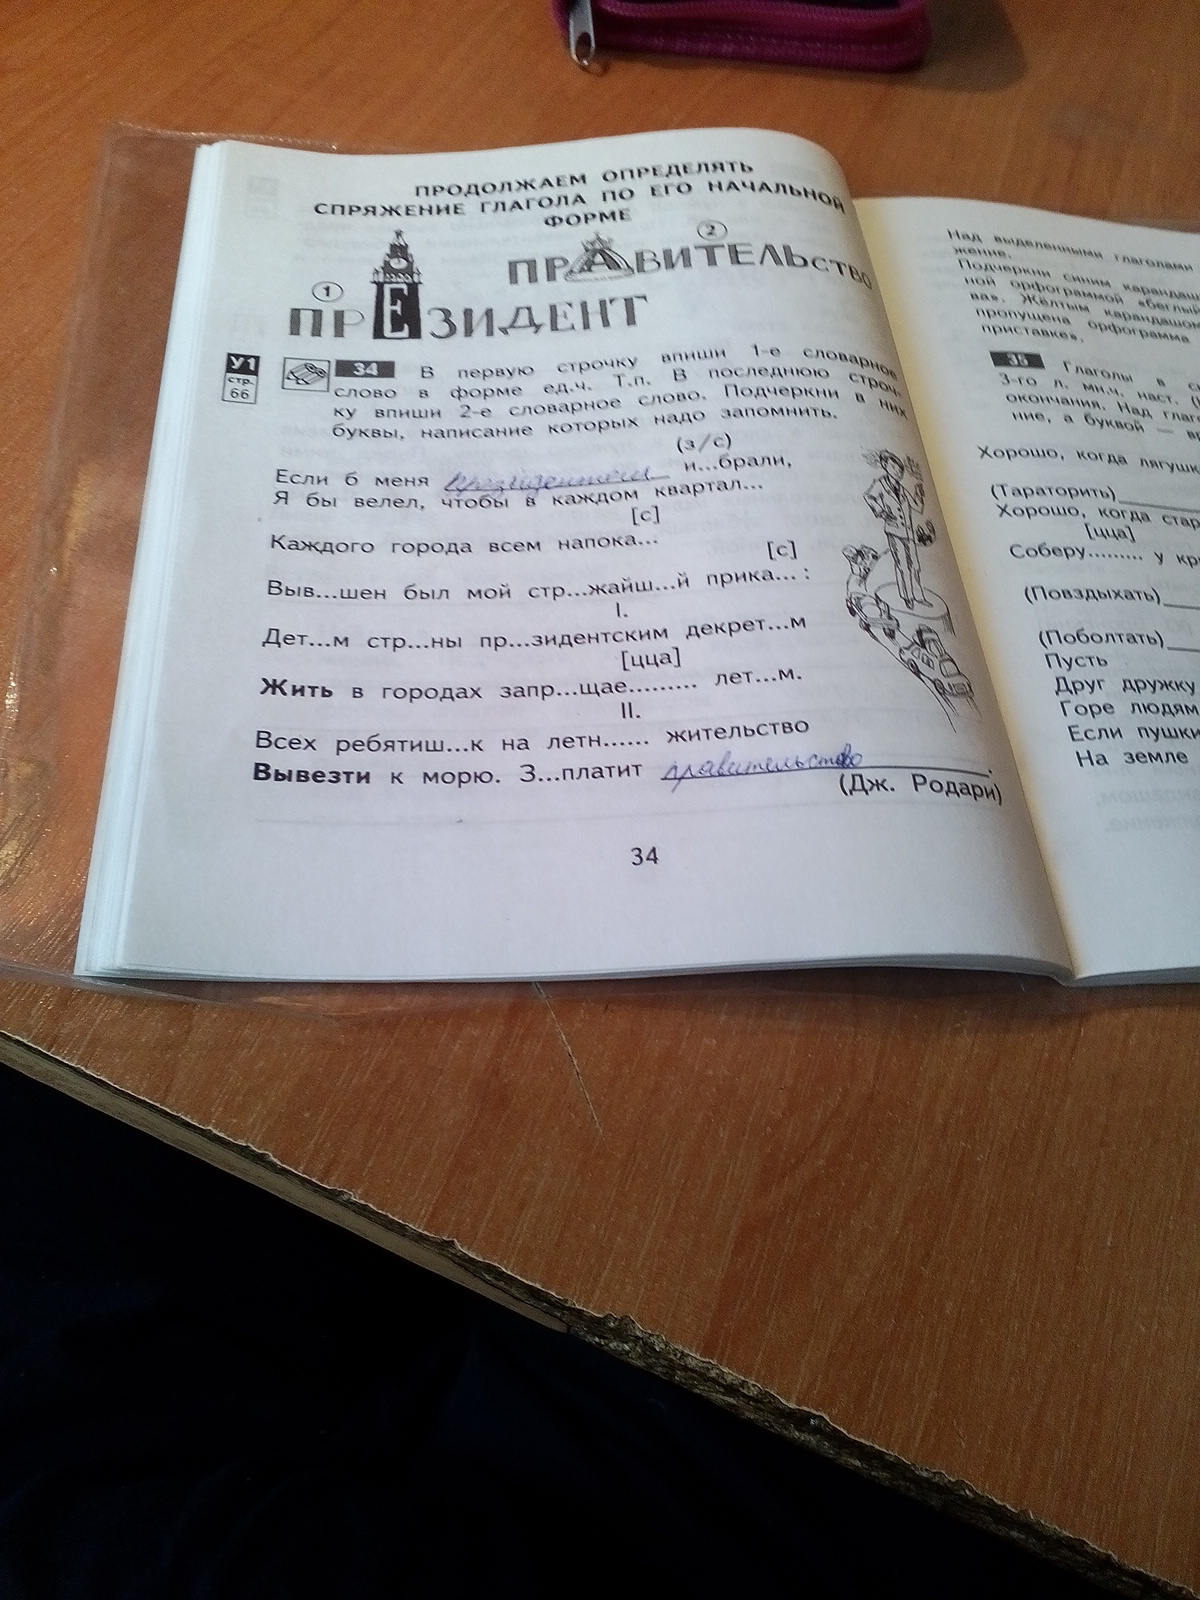 ПРОДОЛЖАЕМ ОПРЕДЕЛЯТЬ
СПРЯЖЕНИЕ ГЛАГОЛА ПО ЕГО НАЧАЛЬНОЙ
ФОРМЕ
2
ПРАВИТЕЛЬСТВО
1
ПРЕЗИДЕНТ
У1
стр.
66
34 В первую строчку впиши 1-е словарное
слово в форме ед.ч. Т.п. В последнюю строч-
ку впиши 2-е словарное слово. Подчеркни в них
буквы, написание которых надо запомнить.
(з/с)
Если б меня президентом и...брали,
Я бы велел, чтобы в каждом квартал...
[с]
Каждого города всем напока...
[с]
Выв...шен был мой стр...жайш...й прика... :
I.
Дет...м стр...ны пр...зидентским декрет...м
[цца]
Жить в городах запр...щае......... лет...м.
II.
Всех ребятиш...к на летн...... жительство
Вывезти к морю. З...платит правительство.
(Дж. Родари)
34
Над выделенными глаголами
жение.
Подчеркни синим каранда
ной орфограммой «беглы
ва». Жёлтым карандашо
пропущена орфограмма
приставке».
35 Глаголы в с
3-го л. мн.ч. наст. (
окончания. Над глаг
ние, а буквой — в
Хорошо, когда лягуш
(Тараторить)
Хорошо, когда стар
[цца]
Соберу......... у кр
(Повздыхать)
(Поболтать)
Пусть
Друг дружку
Горе людям
Если пушки
На земле